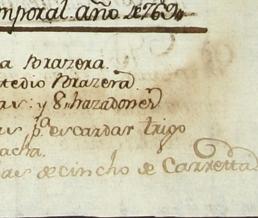 mporal año de 769
a Brazera.
tedio Brazera
as: y 8 hazadones
as pª escardar trigo
acha.
as de cincho de Carreta